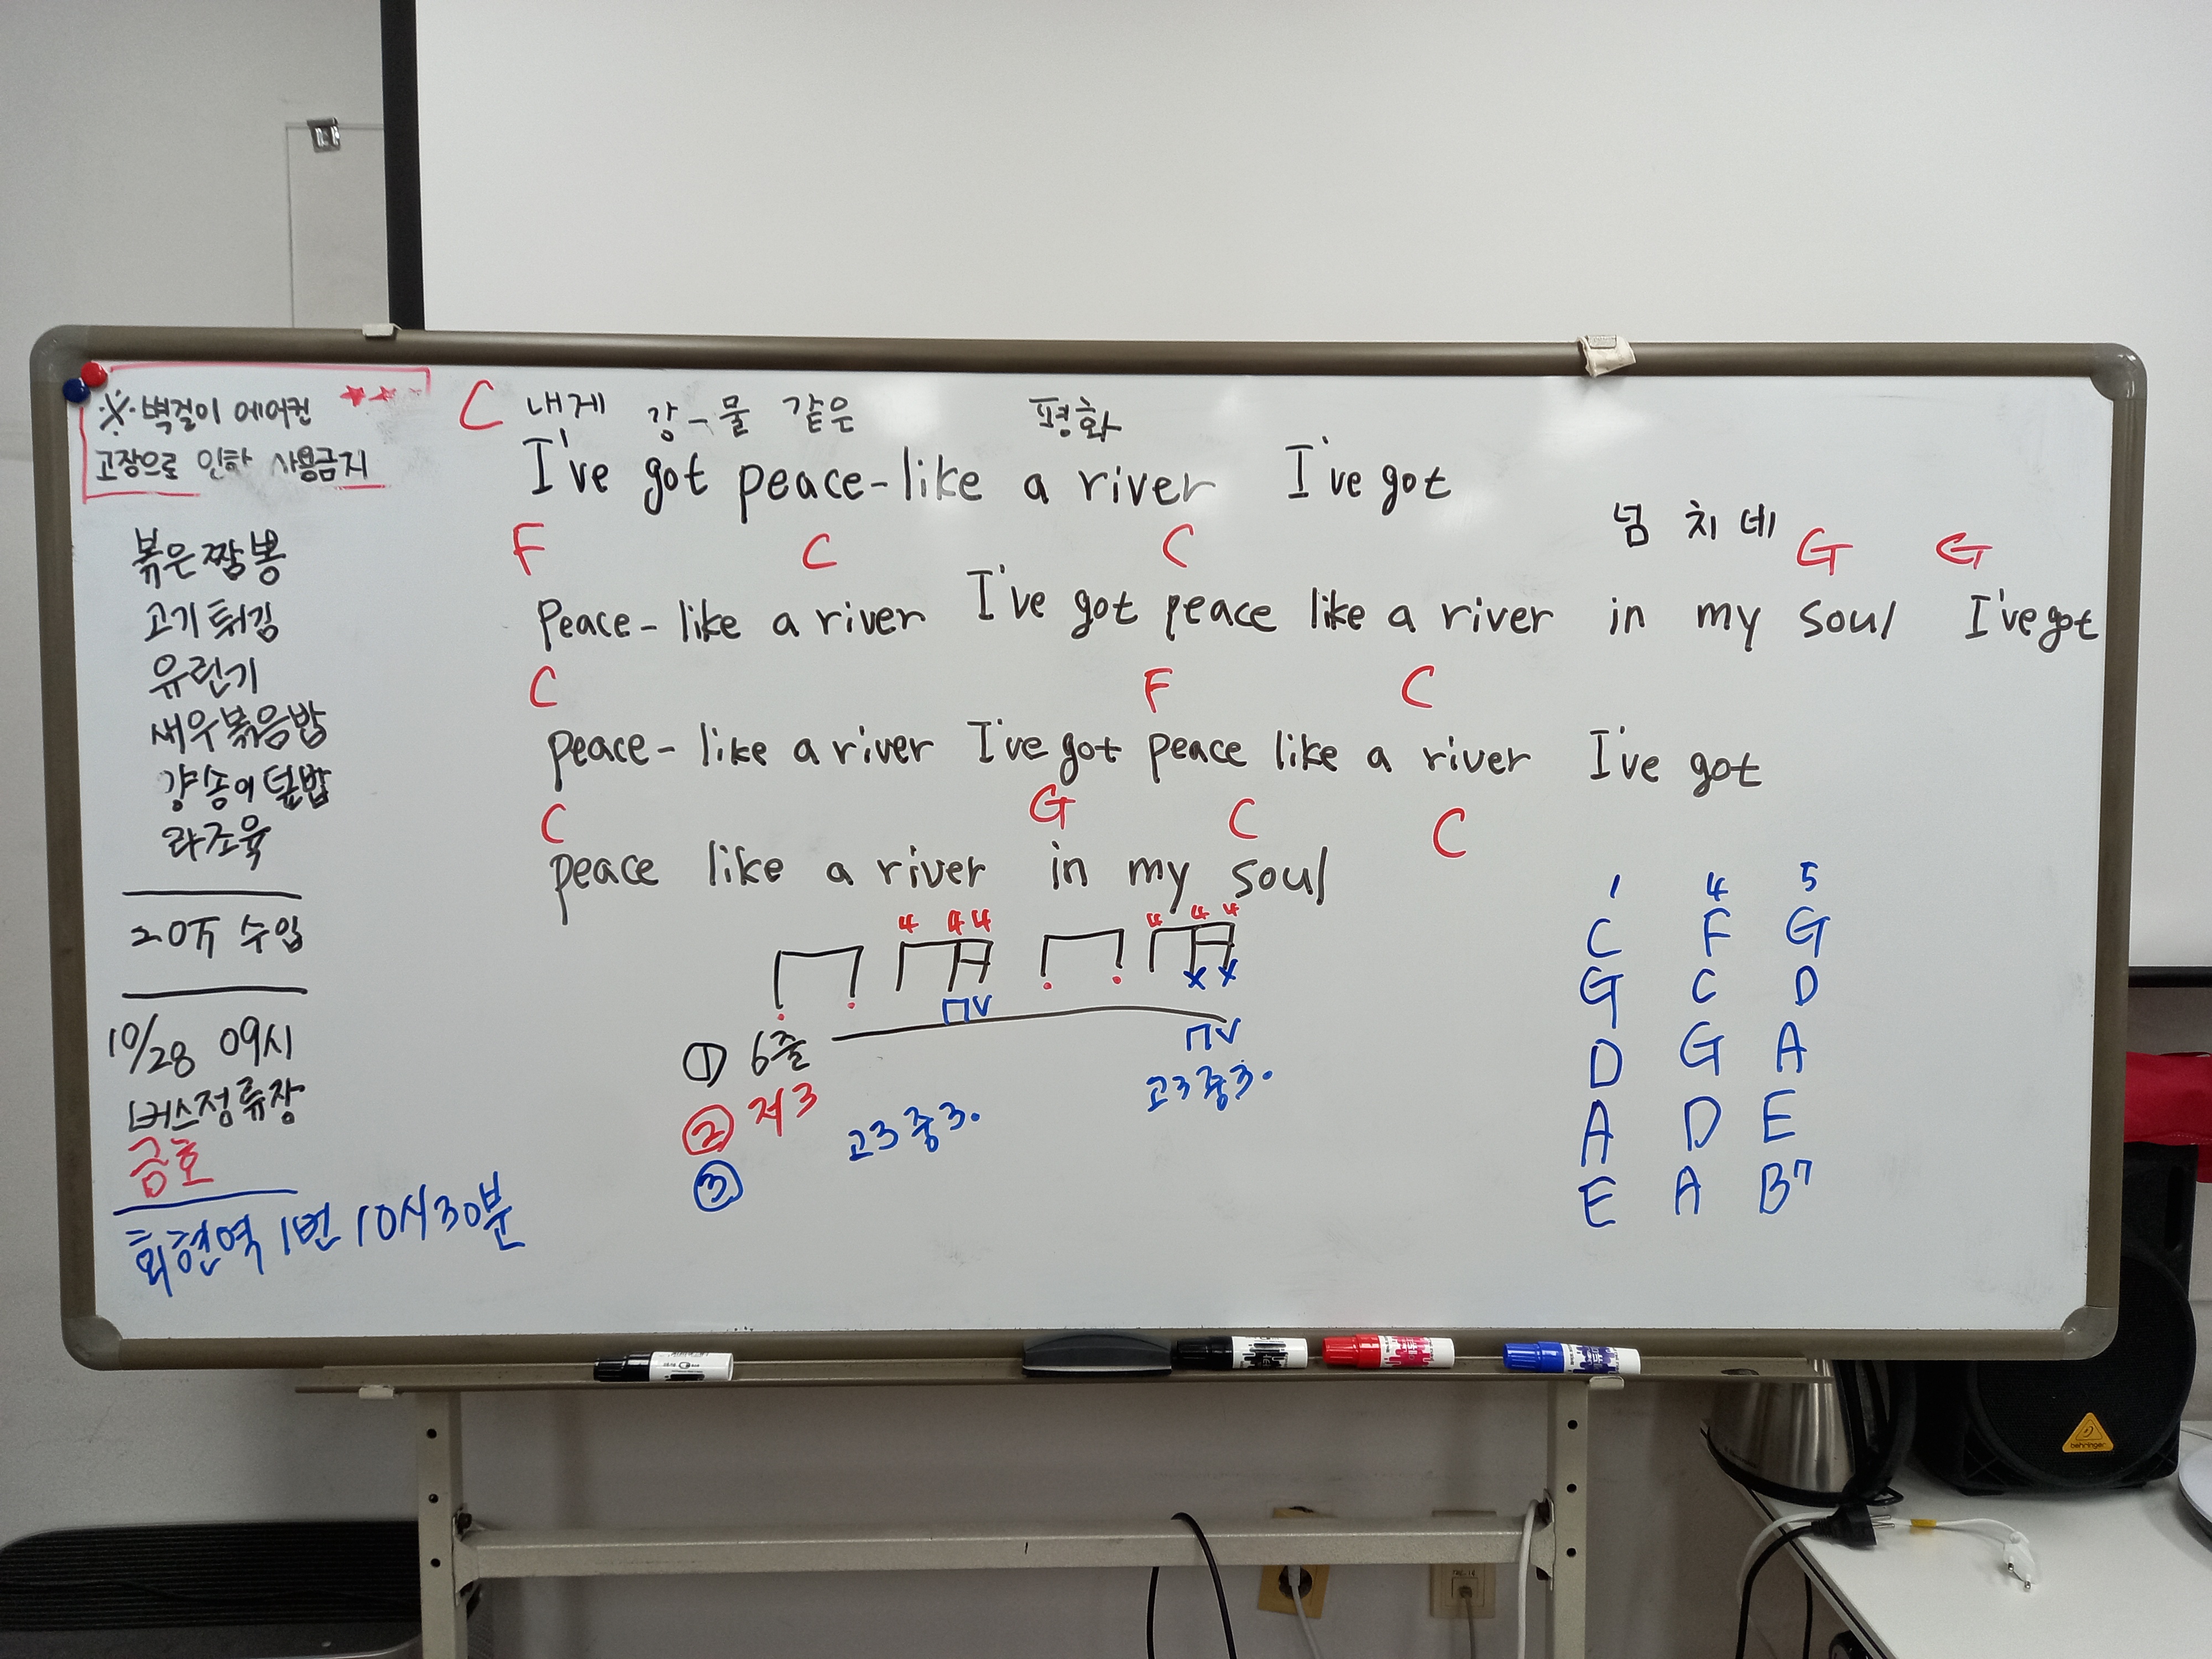 ※ 벽걸이 에어컨
고장으로 인하 사용금지
볶은짬뽕
고기튀김
유린기
새우볶음밥
양송이덮밥
라조육
20万 수입
10/28 09시
버스정류장
금호
회현역 1번 10시30분
C 내게 강-물 같은 평화
I've got peace-like a river I've got
넘 치 네
F C C G G
Peace- like a river I've got peace like a river in my soul I've got
C F C
peace- like a river I've got peace like a river I've got
C G C C
peace like a river in my soul
4 4 4 4 4 4
① 6줄
② 저3
③ 고3중3.
고3중3.
1 4 5
C F G
G C D
D G A
A D E
E A B7
behringer